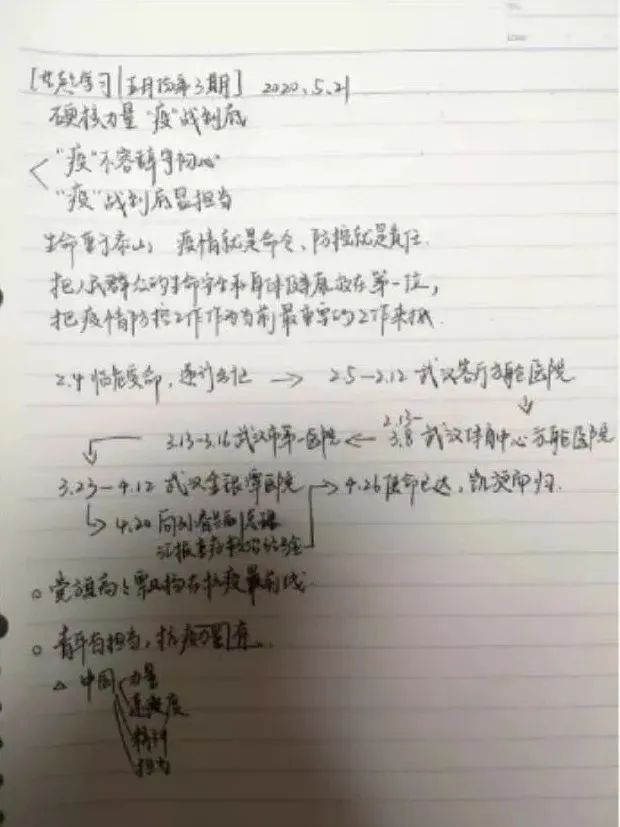 [党员学习|五月 第3期] 2020.5.21
硬核力量 "疫"战到底
"疫"不容辞守初心
"疫"战到底显担当
生命重于泰山,疫情就是命令,防控就是责任.
把人民群众的生命安全和身体健康放在第一位,
把疫情防控工作作为当前最重要的工作来抓.
2.4 临危受命,逆行出征 → 2.5-2.12 武汉客厅方舱医院
3.13-3.16 武汉市第一医院 ← 2.13-3.8 武汉体育中心方舱医院
3.23-4.12 武汉金银潭医院 → 4.26 使命已达,凯旋而归.
4.20 同刘
汇报
党旗高高飘扬在抗疫最前线.
青年有担当,抗疫
△ 中国 力量
速度
精神
担当